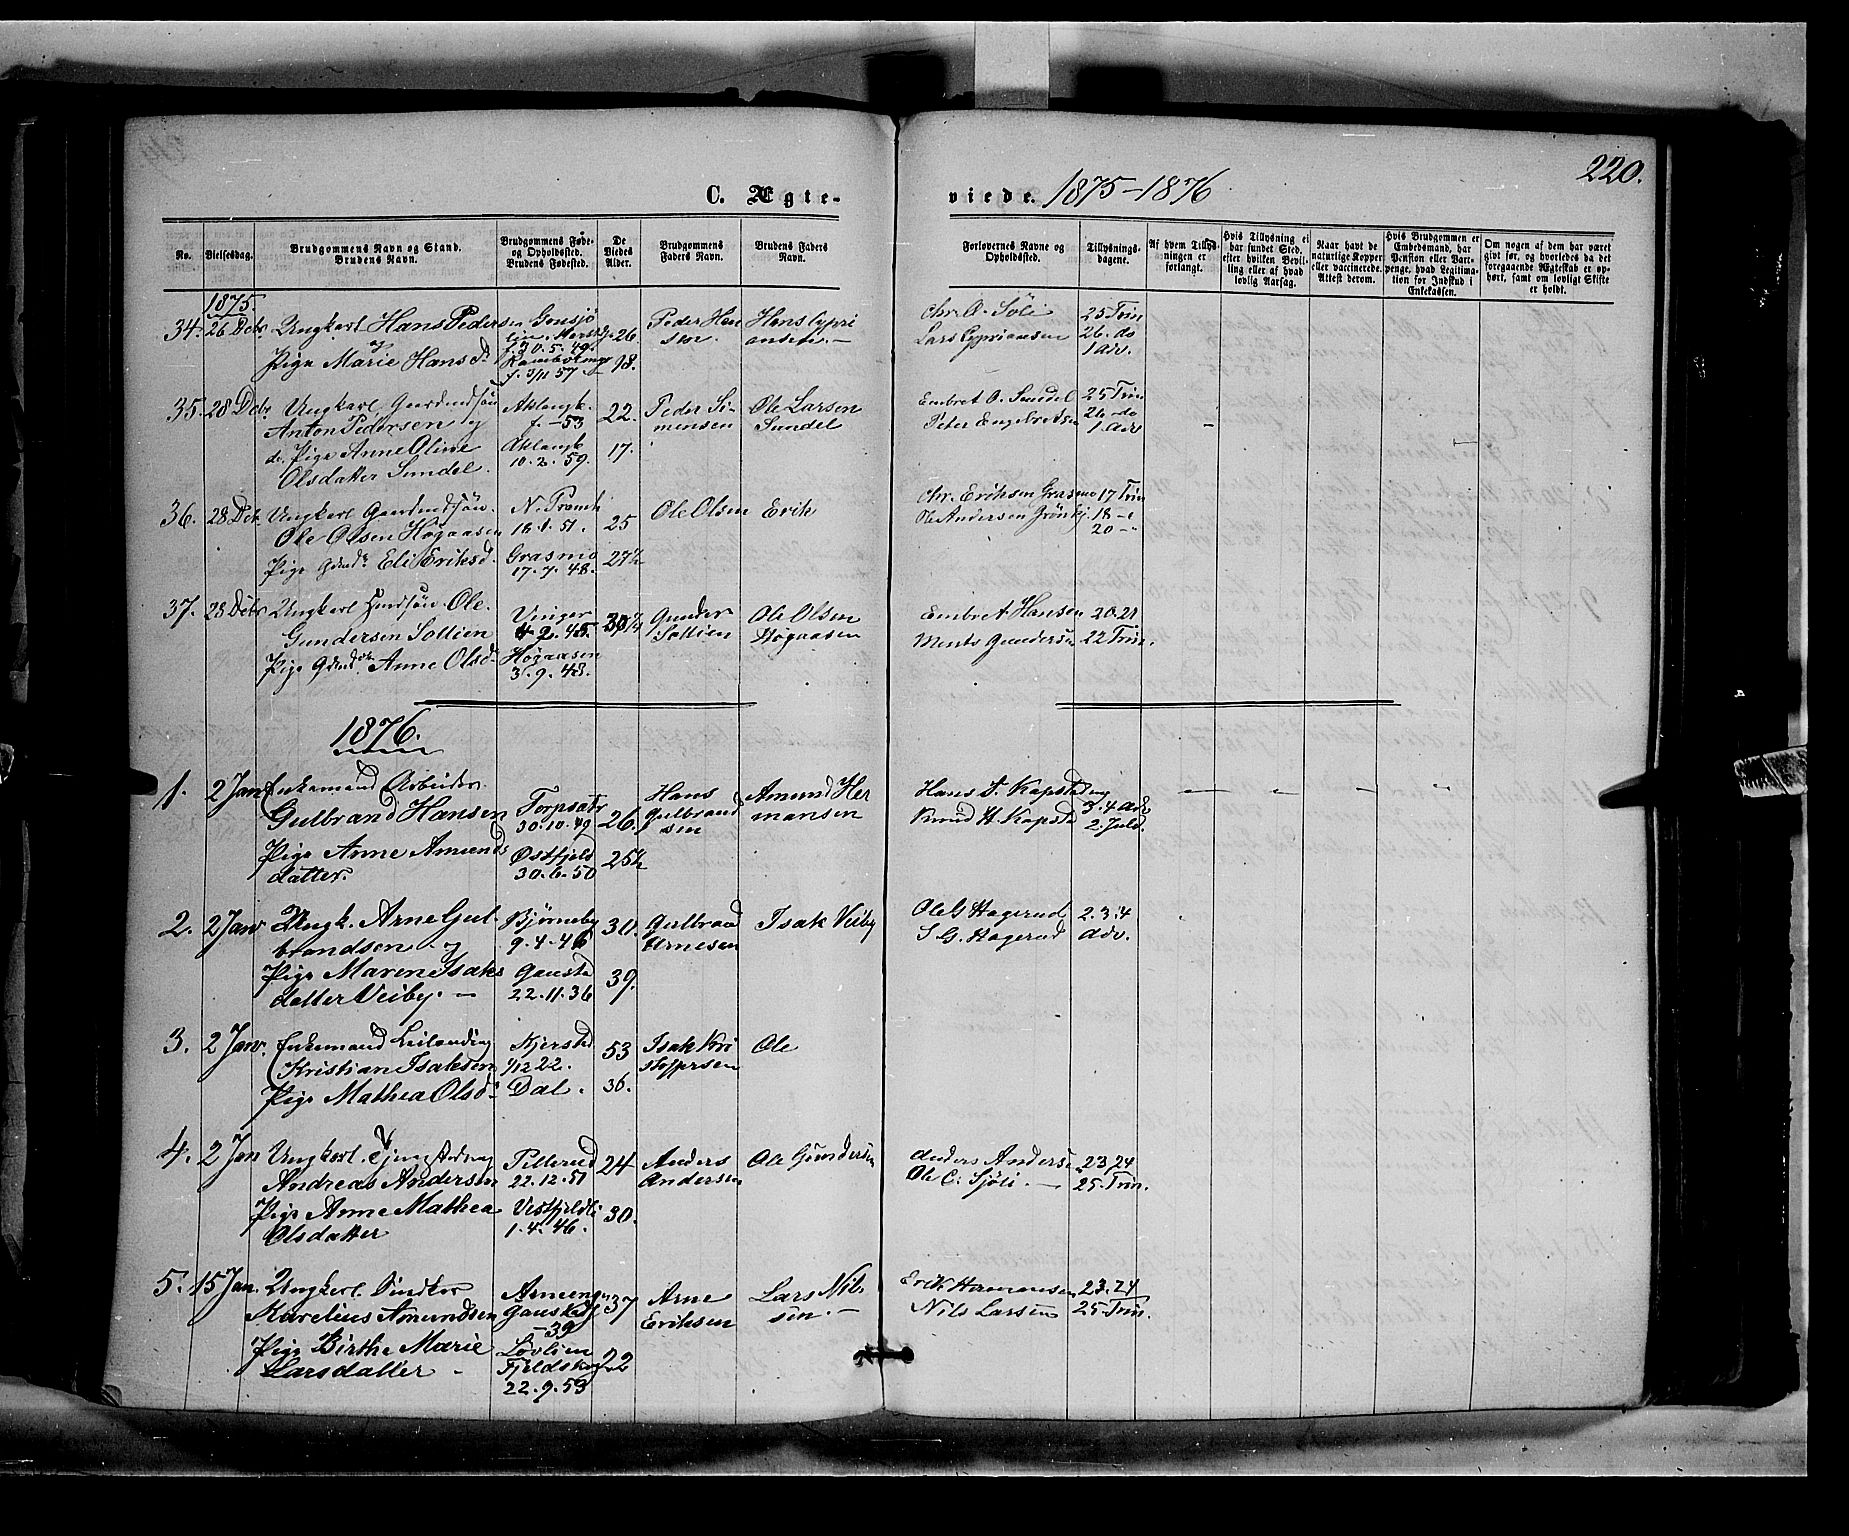 220.
C. Ægte-
viede. 1875-1876
No.
Vielsesdag.
Brudgommens Navn og Stand.
Brudens Navn.
Brudgommens Føde-
og Opholdssted.
Brudens Fødested.
De
Viedes
Alder.
Brudgommens
Faders Navn.
Brudens Faders
Navn.
Forlovernes Navne og
Opholdssted.
Tillysnings-
dagene.
Af hvem Tillys-
ningen er
forlangt.
Hvis Tillysning ei
har fundet Sted,
efter hvilken Bevil-
ling eller af hvad
lovlig Aarsag.
Naar havt de
naturlige Kopper
eller vaccinerede.
Attest derom.
Hvis Brudgommen er
Embedsmand, hvad
Pension eller Vart-
penge, hvad Legitima-
tion for Indskud i
Enkekassen.
Om nogen af dem har været
gift før, og hvorledes da det
foregaaende Ægteskab er op-
hørt, samt om lovligt Skifte
er holdt.
1875
34. 26 Debr Ungkarl Hans Peder
sen
26
Peder Han
sen.
Hans Cypri
ansen. -
Chr. O. Söli
Lars Cypriansen
25 Trin
26. do
1 adv.
og
Pige Marie Hans d.
f. 3/11 57
18.
35. 28 Debr Ungkarl Gaardmdsön
Anton Pedersen og
f. -53
22.
Peder Si-
mensen
Ole Larsen
Sundel
Embret O. Sundel
Peter Engebretsen
25 Trin
26 do
1. adv
Pige Anne Oline
Olsdatter Sundel.
10. 2. 59.
17.
36. 28 Debr. Ungkarl Gaardmdsön
Ole Olsen Högaasen
18. 1. 51.
25
Ole Olsen
Erik
Chr. Eriksen Grasmo
Ole Andersen
17 Trin
18 -
20 -
Pige Eli Eriksd.
Grasmo
17. 7. 48.
27½
37. 28 Debr Ungkarl Ole
Gundersen Sollien
Vinger
4. 2. 45.
30¾
Gunder
Sollien
Ole Olsen
Högaasen
Embret Hansen
Gundersen
20. 21
22 Trin.
Pige Anne Olsd.
Högaasen
3. 9. 48.
1876.
1. 2 Jan Enkemand Arbeider
Gulbrand Hansen
30. 10. 49
26.
Hans
Gulbrand
sen
Amund Her
mansen
Hans Kapstad
Knud H. Kapstad
3. 4. adv
2. Juld.
Pige Anne Amunds
datter.
Østfjeld
30. 6. 50
25½
2. 2 Jan Ungk. Arne Gul
brandsen og
Björneby
9. 4. 46
30.
Gulbrand
Arnesen
Isak Veiby
Ole G Hagerud
S G. Hagerud
2. 3. 4
adv.
Pige Maren Isaks
datter Veiby. -
Gausta
22. 11. 36
39.
3. 2 Jan. Enkemand Leilending
Kristian Isaksen
Kjersta
1/12 22.
53
Isak Kri
stoffersen
Ole
Pige Mathea Olsd.
Dal.
36.
4. 2 Jan Ungkarl
Andreas Andersen
Pellerud
22. 12. 51
24
Anders
Andersen
Ole Gundersen
Anders Andersen
Ole C. Sjöli. -
23, 24
25. Trin.
Pige Anne Mathea
Olsdatter
Vestfjeldli
1. 4. 46.
30.
5. 15 Jan. Ungkarl
Karelius Amundsen
-39
37
Arne
Eriksen
Lars Nil-
sen. -
Erik Hermansen
Nils Larsen
23. 24
25. Trin.
Pige Birthe Marie
Larsdatter -
Lövlien
Fjeldskog
22. 9. 53
22